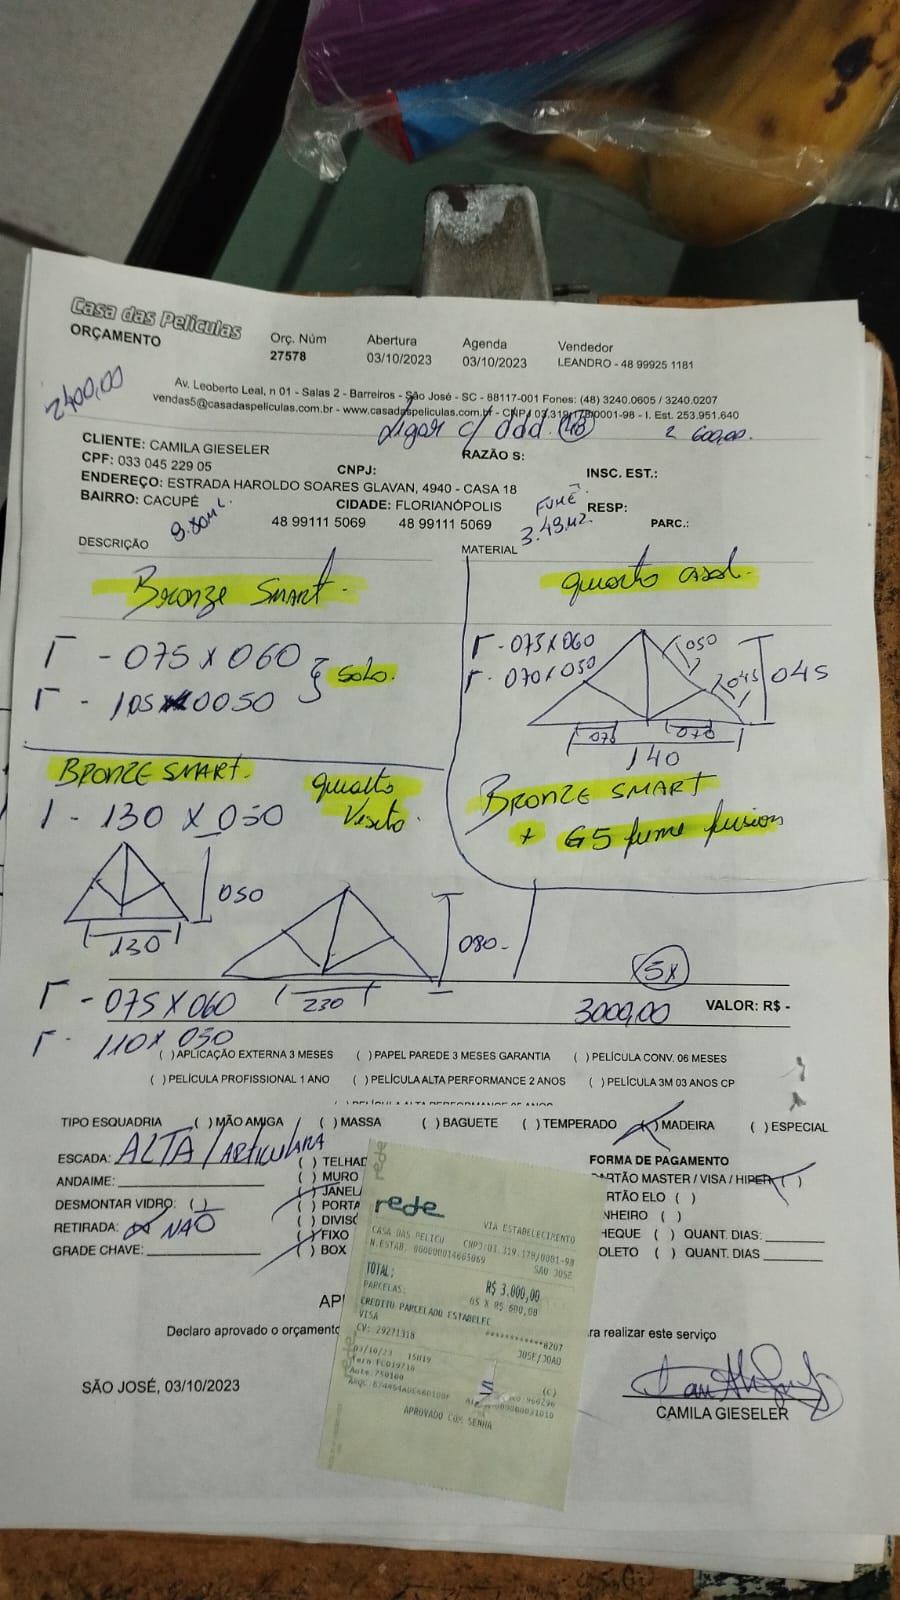 Casa das Películas
ORÇAMENTO
Orç. Núm
27578
Abertura
03/10/2023
Agenda
03/10/2023
Vendedor
LEANDRO - 48 99925 1181
2400,00
Av. Leoberto Leal, n 01 - Salas 2 - Barreiros - São José - SC - 88117-001 Fones: (48) 3240.0605 / 3240.0207
vendas5@casadaspeliculas.com.br - www.casadaspeliculas.com.br - CNPJ 03.319.178/0001-98 - I. Est. 253.951.640
Ligar c/ ddd. 48
600,00.
CLIENTE: CAMILA GIESELER
RAZÃO S:
CPF: 033 045 229 05
CNPJ:
INSC. EST.:
ENDEREÇO: ESTRADA HAROLDO SOARES GLAVAN, 4940 - CASA 18
BAIRRO: CACUPÉ
CIDADE: FLORIANÓPOLIS
FUMÊ
RESP:
48 99111 5069
48 99111 5069
3.49M2.
PARC.:
DESCRIÇÃO
MATERIAL
Bronze Smart.
quarto casal.
- 075 x 060
- 105 x 0050
solo.
- 075 x 060
- 070 x 050
050
045
045
070
070
140
BRONZE SMART
+ G5 fume fusion
BRONZE SMART.
quarto
1 - 130 x 050
050
130
080-
230
5x
- 075 x 060
3000,00
VALOR: R$ -
- 110 x 050
( ) APLICAÇÃO EXTERNA 3 MESES
( ) PAPEL PAREDE 3 MESES GARANTIA
( ) PELÍCULA CONV. 06 MESES
( ) PELÍCULA PROFISSIONAL 1 ANO
( ) PELÍCULA ALTA PERFORMANCE 2 ANOS
( ) PELÍCULA 3M 03 ANOS CP
TIPO ESQUADRIA
( ) MÃO AMIGA
( ) MASSA
( ) BAGUETE
( ) TEMPERADO
( ) MADEIRA
( ) ESPECIAL
ESCADA: ALTA / ARTICULADA
ANDAIME:
DESMONTAR VIDRO: ( )
RETIRADA: NÃO
GRADE CHAVE:
( ) TELHAD
( ) MURO
( ) JANEL
( ) PORTA
( ) DIVIS
( ) FIXO
( ) BOX
FORMA DE PAGAMENTO
ARTÃO MASTER / VISA / HIPER ( )
RTÃO ELO ( )
NHEIRO ( )
HEQUE ( ) QUANT. DIAS:
OLETO ( ) QUANT. DIAS
rede
VIA ESTABELECIMENTO
CASA DAS PELICU
CNPJ:03.319.178/0001-98
N.ESTAB. 000000014665069
SAO JOSE
TOTAL:
R$ 3.000,00
PARCELAS:
05 X R$ 600,00
CREDITO PARCELADO ESTABELEC
VISA
************8207
CV: 29271318
JOSE/JOAO
03/10/23
(C)
APROVADO COM SENHA
AP
Declaro aprovado o orçamento
ra realizar este serviço
SÃO JOSÉ, 03/10/2023
CAMILA GIESELER